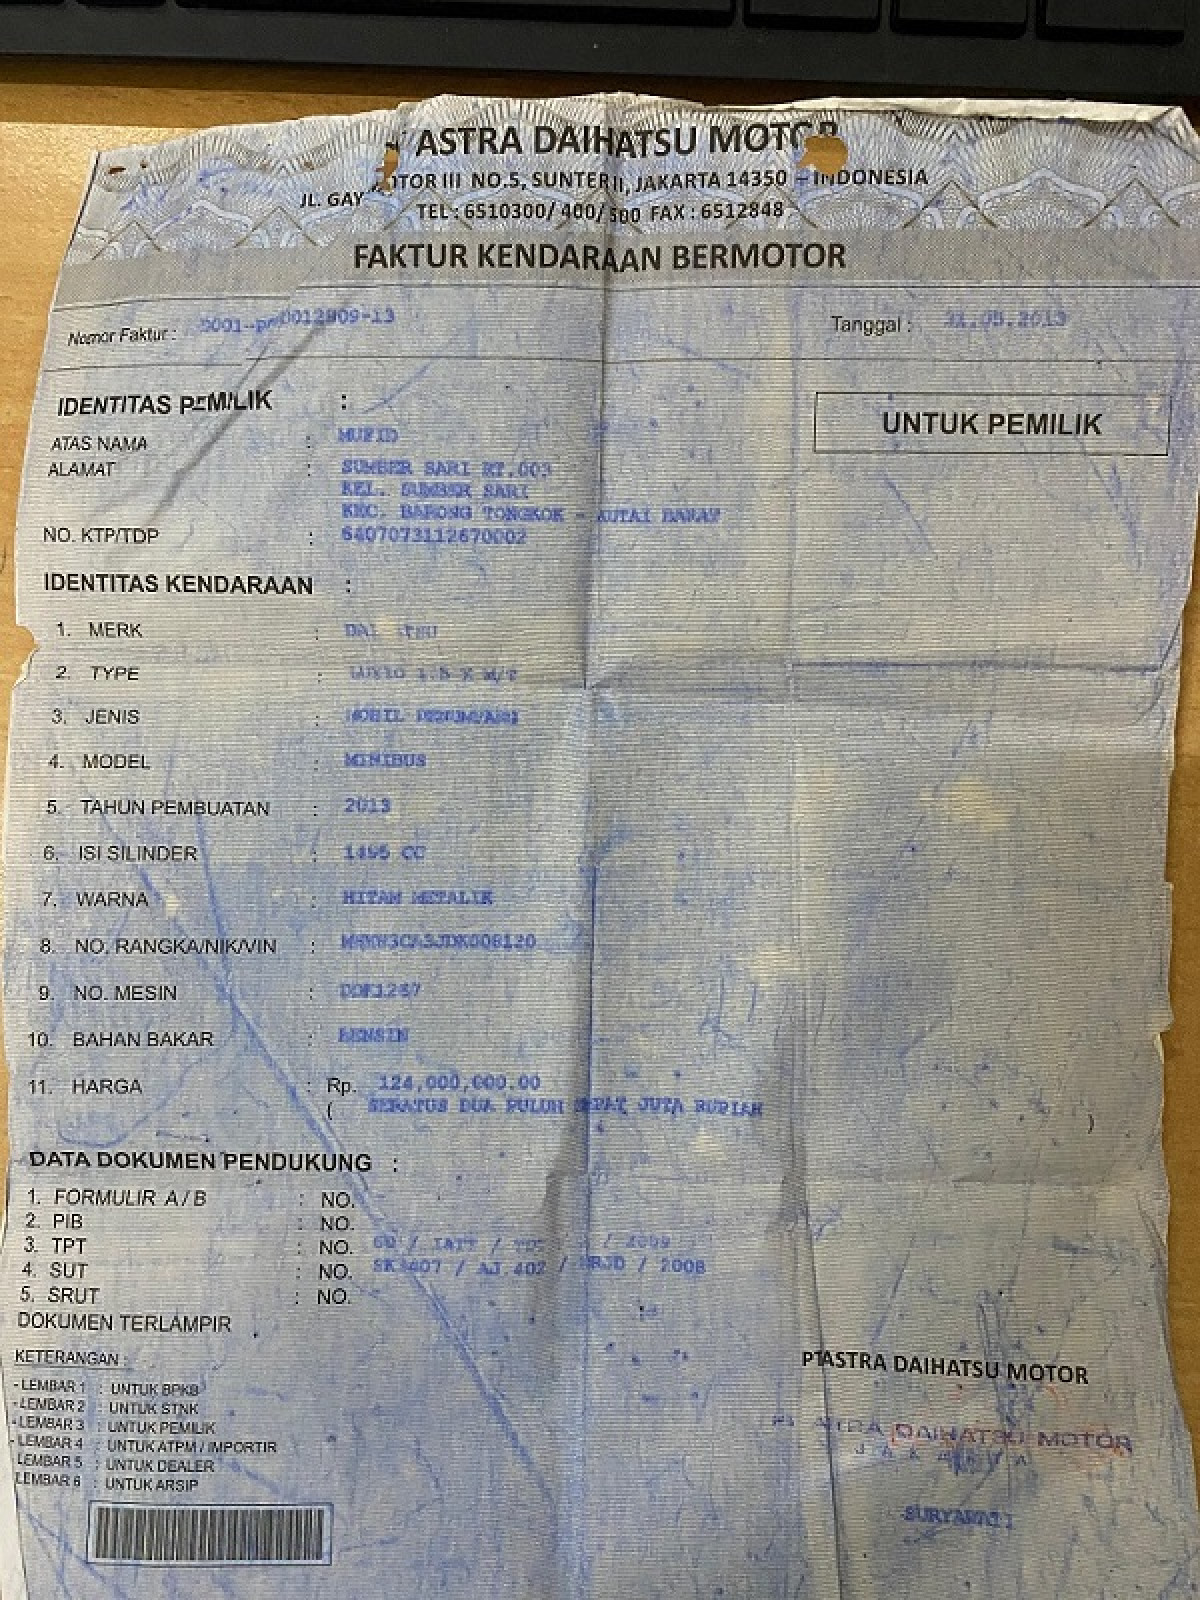 ASTRA DAIHATSU MOTOR
JL. GAY OTOR III NO.5, SUNTER II, JAKARTA 14350 - INDONESIA
TEL : 6510300/ 400/ 500 FAX : 6512848
FAKTUR KENDARAAN BERMOTOR
Nomor Faktur : 0012909-13 Tanggal : .05.2013
IDENTITAS PEMILIK :
UNTUK PEMILIK
ATAS NAMA : MUFID
ALAMAT : SUMBER SARI RT.003
KEL. SUMBER SARI
KEC. BARONG TONGKOK - KUTAI BARAT
NO. KTP/TDP : 6407073112670002
IDENTITAS KENDARAAN :
1. MERK : DAI TSU
2. TYPE : LUXIO 1.5 X M/T
3. JENIS : MOBIL PENUMPANG
4. MODEL : MINIBUS
5. TAHUN PEMBUATAN : 2013
6. ISI SILINDER : 1495 CC
7. WARNA : HITAM METALIK
8. NO. RANGKA/NIK/VIN :
9. NO. MESIN :
10. BAHAN BAKAR : BENSIN
11. HARGA : Rp. 124,000,000.00
( SERATUS DUA PULUH EMPAT JUTA RUPIAH )
DATA DOKUMEN PENDUKUNG :
1. FORMULIR A / B : NO.
2. PIB : NO.
3. TPT : NO. / IATT / / 2009
4. SUT : NO. SK 407 / AJ.402 / DRJD / 2008
5. SRUT : NO.
DOKUMEN TERLAMPIR
KETERANGAN :
- LEMBAR 1 : UNTUK BPKB
- LEMBAR 2 : UNTUK STNK
- LEMBAR 3 : UNTUK PEMILIK
- LEMBAR 4 : UNTUK ATPM / IMPORTIR
LEMBAR 5 : UNTUK DEALER
LEMBAR 6 : UNTUK ARSIP
PT ASTRA DAIHATSU MOTOR
DAIHATSU MOTOR